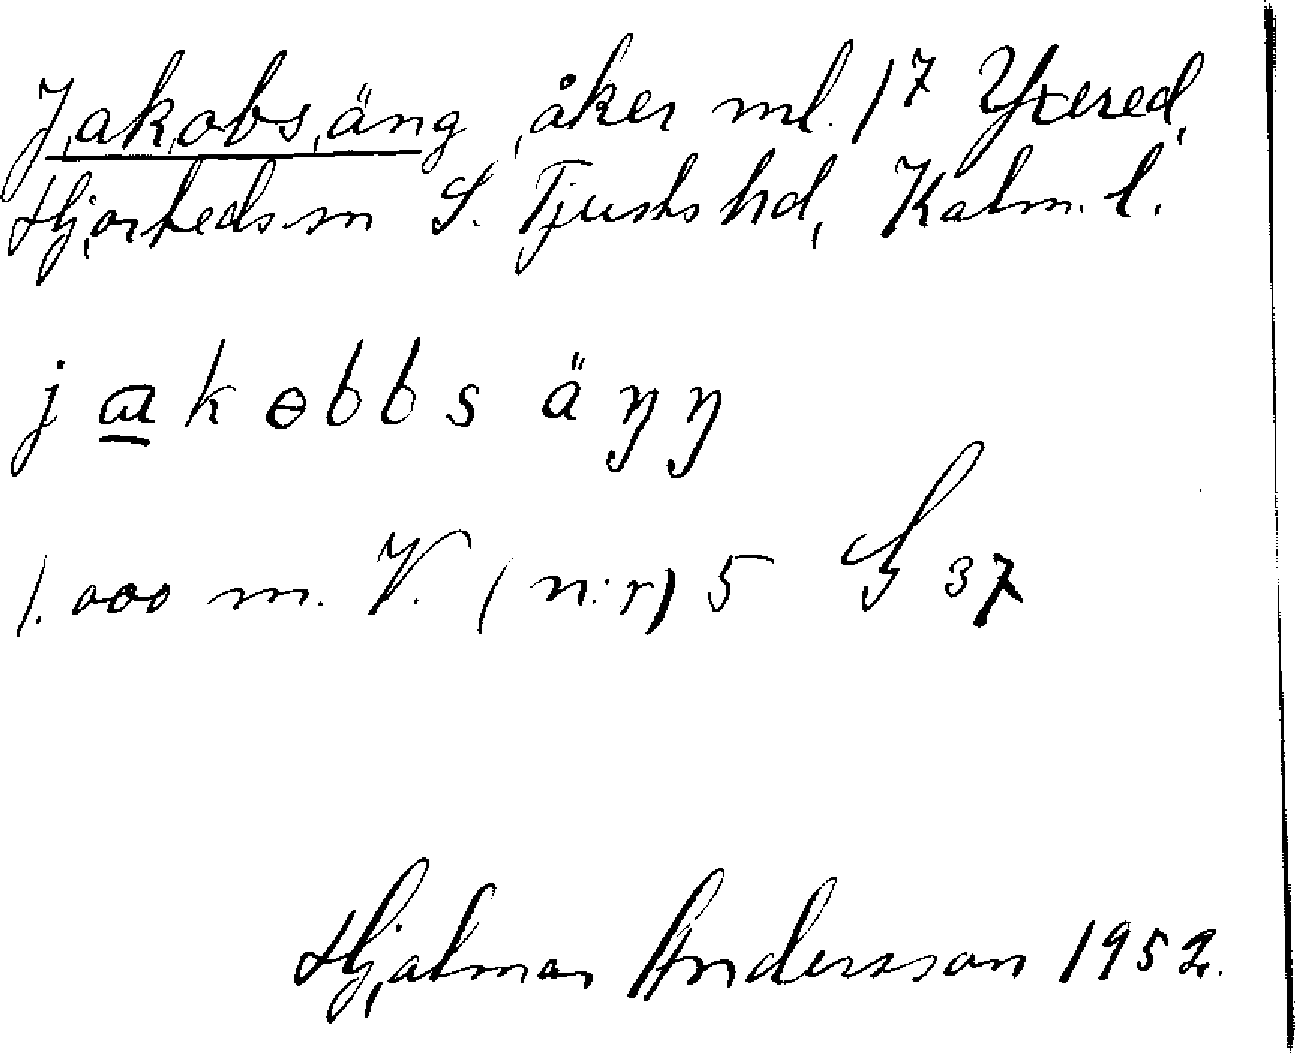 Jakobsäng, åker ml. 17 Yxered,
Hjorteds sn S. Tjusts hd, Kalm. l.
jakobbs äŋŋ
1.000 m. V. (n:r) 5 S 37
Hjalmar Andersson 1952.